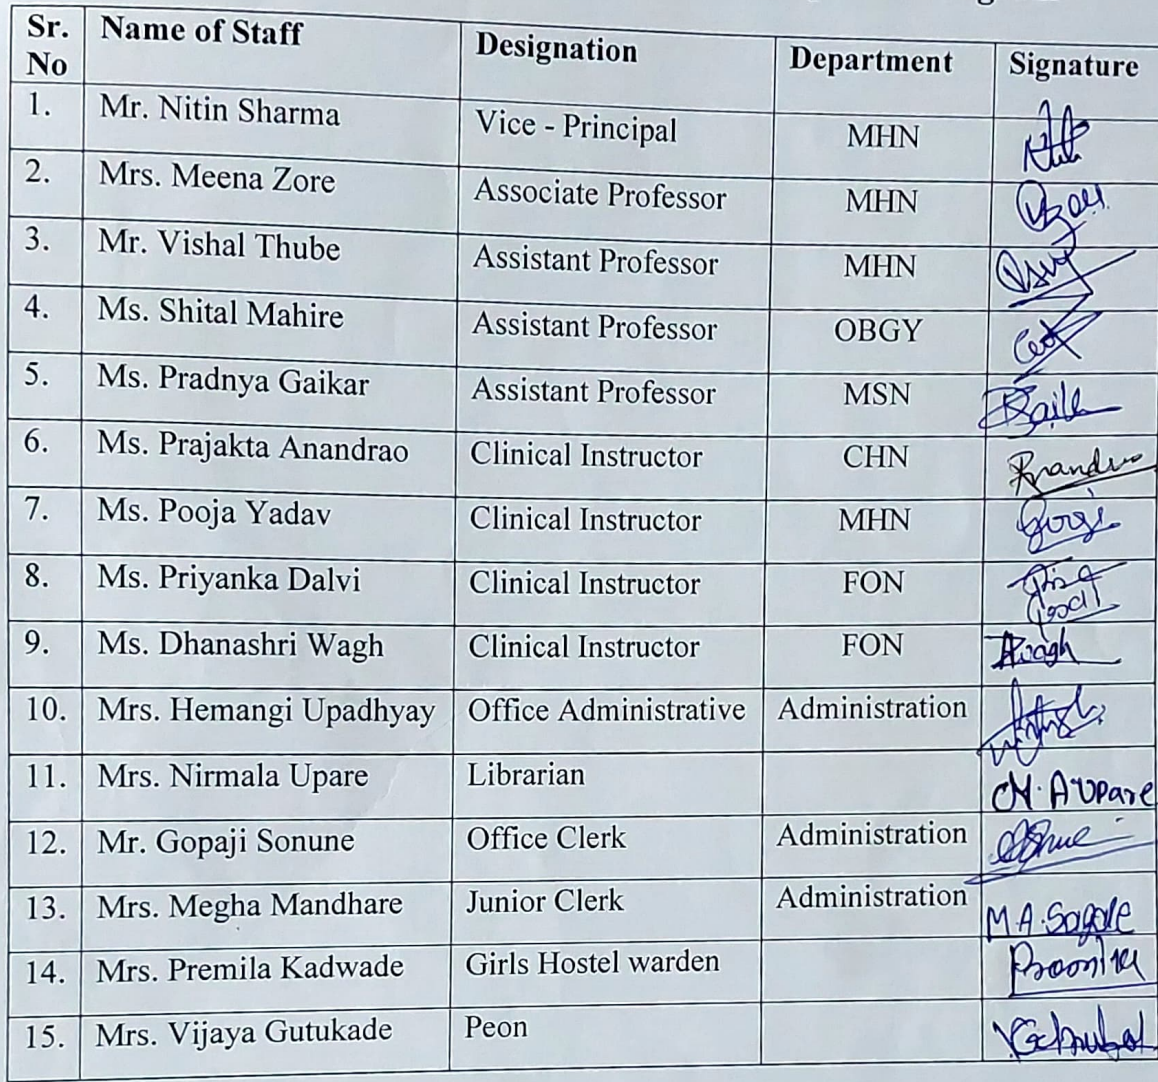 Sr. No Name of Staff Designation Department Signature
1. Mr. Nitin Sharma Vice - Principal MHN
2. Mrs. Meena Zore Associate Professor MHN
3. Mr. Vishal Thube Assistant Professor MHN
4. Ms. Shital Mahire Assistant Professor OBGY
5. Ms. Pradnya Gaikar Assistant Professor MSN
6. Ms. Prajakta Anandrao Clinical Instructor CHN
7. Ms. Pooja Yadav Clinical Instructor MHN
8. Ms. Priyanka Dalvi Clinical Instructor FON
9. Ms. Dhanashri Wagh Clinical Instructor FON
10. Mrs. Hemangi Upadhyay Office Administrative Administration
11. Mrs. Nirmala Upare Librarian
12. Mr. Gopaji Sonune Office Clerk Administration
13. Mrs. Megha Mandhare Junior Clerk Administration M.A.Sagale
14. Mrs. Premila Kadwade Girls Hostel warden
15. Mrs. Vijaya Gutukade Peon